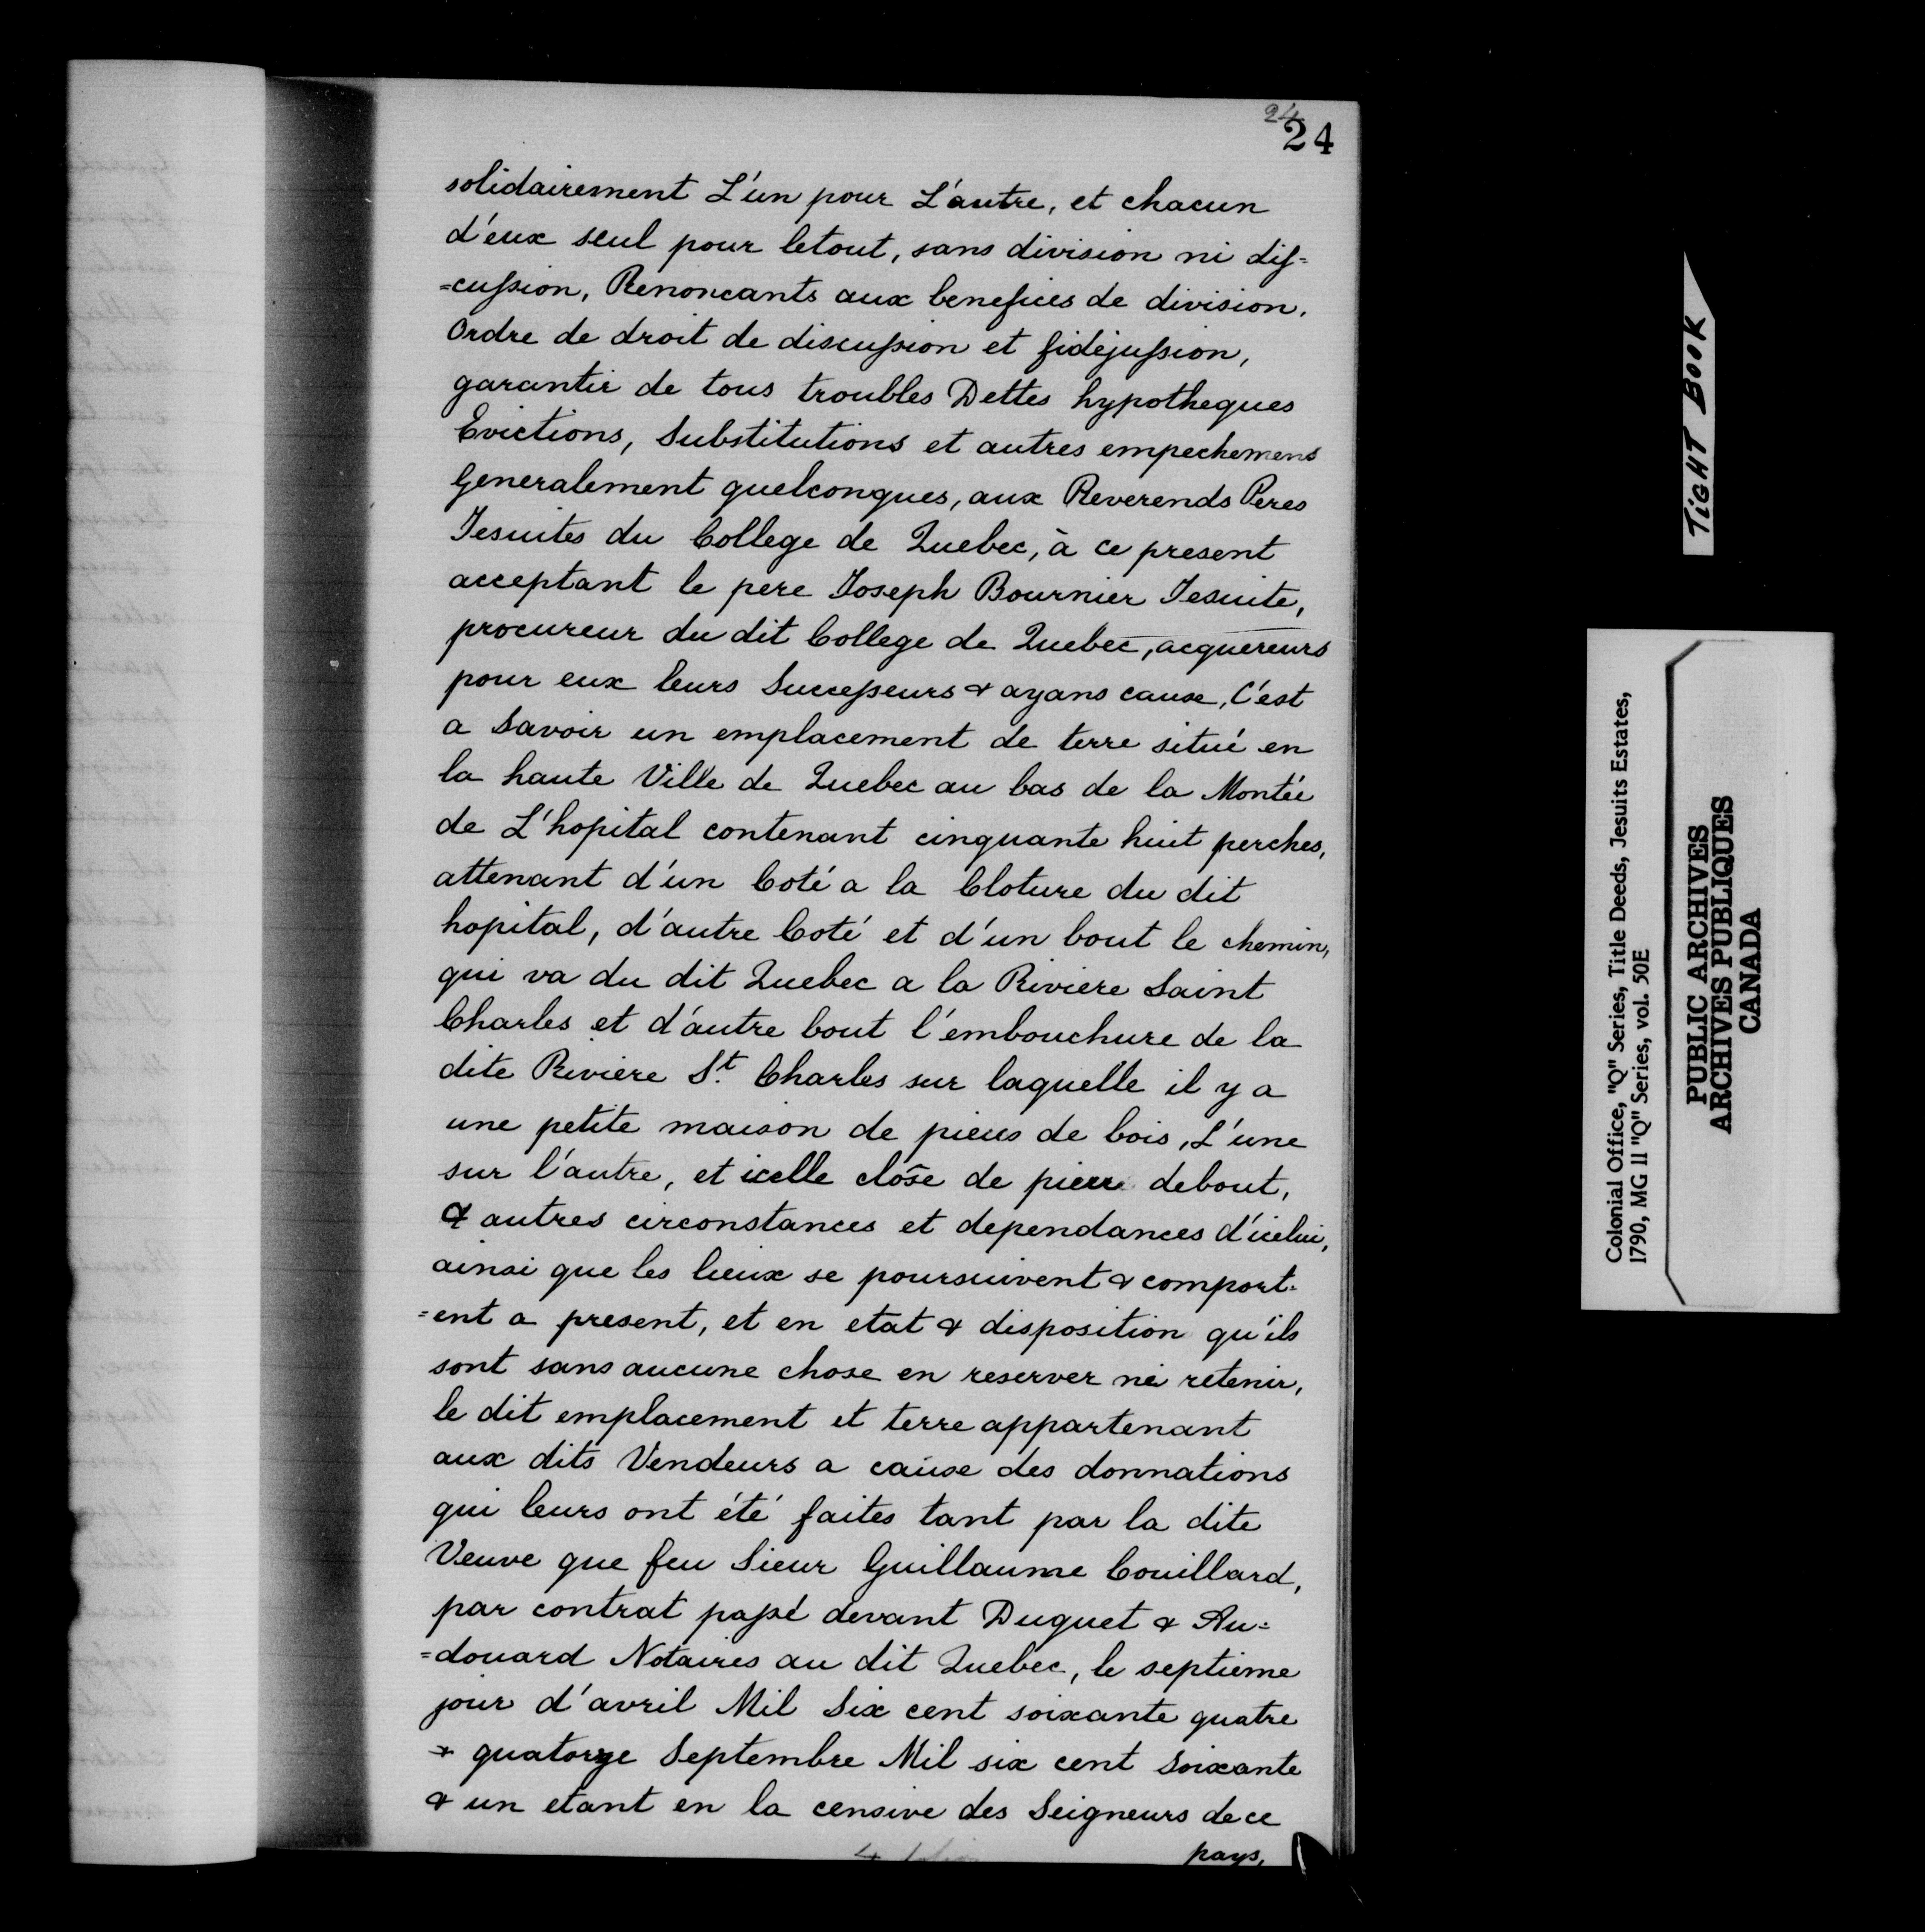 24
24
solidairement L'un pour L'autre, et chacun
d'eux seul pour letout, sans division ni dis=
=cussion, Renoncants aux benefices de division,
Ordre de droit de discussion et fidejussion,
garantir de tous troubles Dettes hypotheques
Evictions, Substitutions et autres empechemens
Generalement quelconques, aux Reverends Peres
Jesuites du College de Quebec, à ce present
acceptant le pere Joseph Bournier Jesuite,
procureur du dit College de Quebec, acquereurs
pour eux leurs Successeurs & ayans cause, C'est
a Savoir un emplacement de terre situé en
la haute Ville de Quebec au bas de la Montée
de L'hopital contenant cinquante huit perches,
attenant d'un Coté a la Cloture du dit
hopital, d'autre Coté et d'un bout le chemin,
qui va du dit Quebec a la Riviere Saint
Charles et d'autre bout l'embouchure de la
dite Riviere St. Charles sur laquelle il y a
une petite maison de pieus de bois, L'une
sur l'autre, et icelle close de pieux debout,
& autres circonstances et dependances d'icelui,
ainsi que les lieux se poursuivent & comport=
=ent a present, et en etat & disposition qu'ils
sont sans aucune chose en reserver ni retenir,
le dit emplacement et terre appartenant
aux dits Vendeurs a cause des donnations
qui leurs ont été faites tant par la dite
Veuve que feu Sieur Guillaume Couillard,
par contrat passé devant Duquet & Au=
=douard Notaires au dit Quebec, le septieme
jour d'avril Mil Six cent soixante quatre
& quatorze Septembre Mil six cent Soixante
& un etant en la censive des Seigneurs de ce
pays,
TIGHT BOOK
Colonial Office, "Q" Series, Title Deeds, Jesuits Estates,
1790, MG 11 "Q" Series, vol. 50E
PUBLIC ARCHIVES
ARCHIVES PUBLIQUES
CANADA